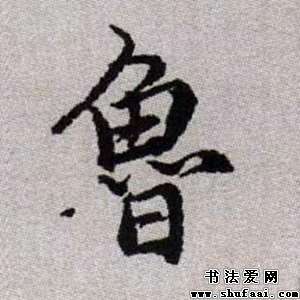 魯
书法爱网
www.shufaai.com